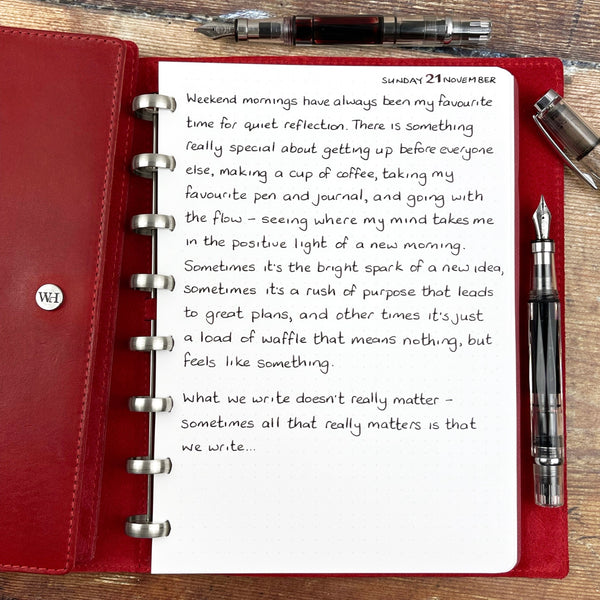 SUNDAY 21 NOVEMBER
Weekend mornings have always been my favourite
time for quiet reflection. There is something
really special about getting up before everyone
else, making a cup of coffee, taking my
favourite pen and journal, and going with
the flow – seeing where my mind takes me
in the positive light of a new morning.
Sometimes it's the bright spark of a new idea,
sometimes it's a rush of purpose that leads
to great plans, and other times it's just
a load of waffle that means nothing, but
feels like something.
What we write doesn't really matter –
sometimes all that really matters is that
we write...
WH